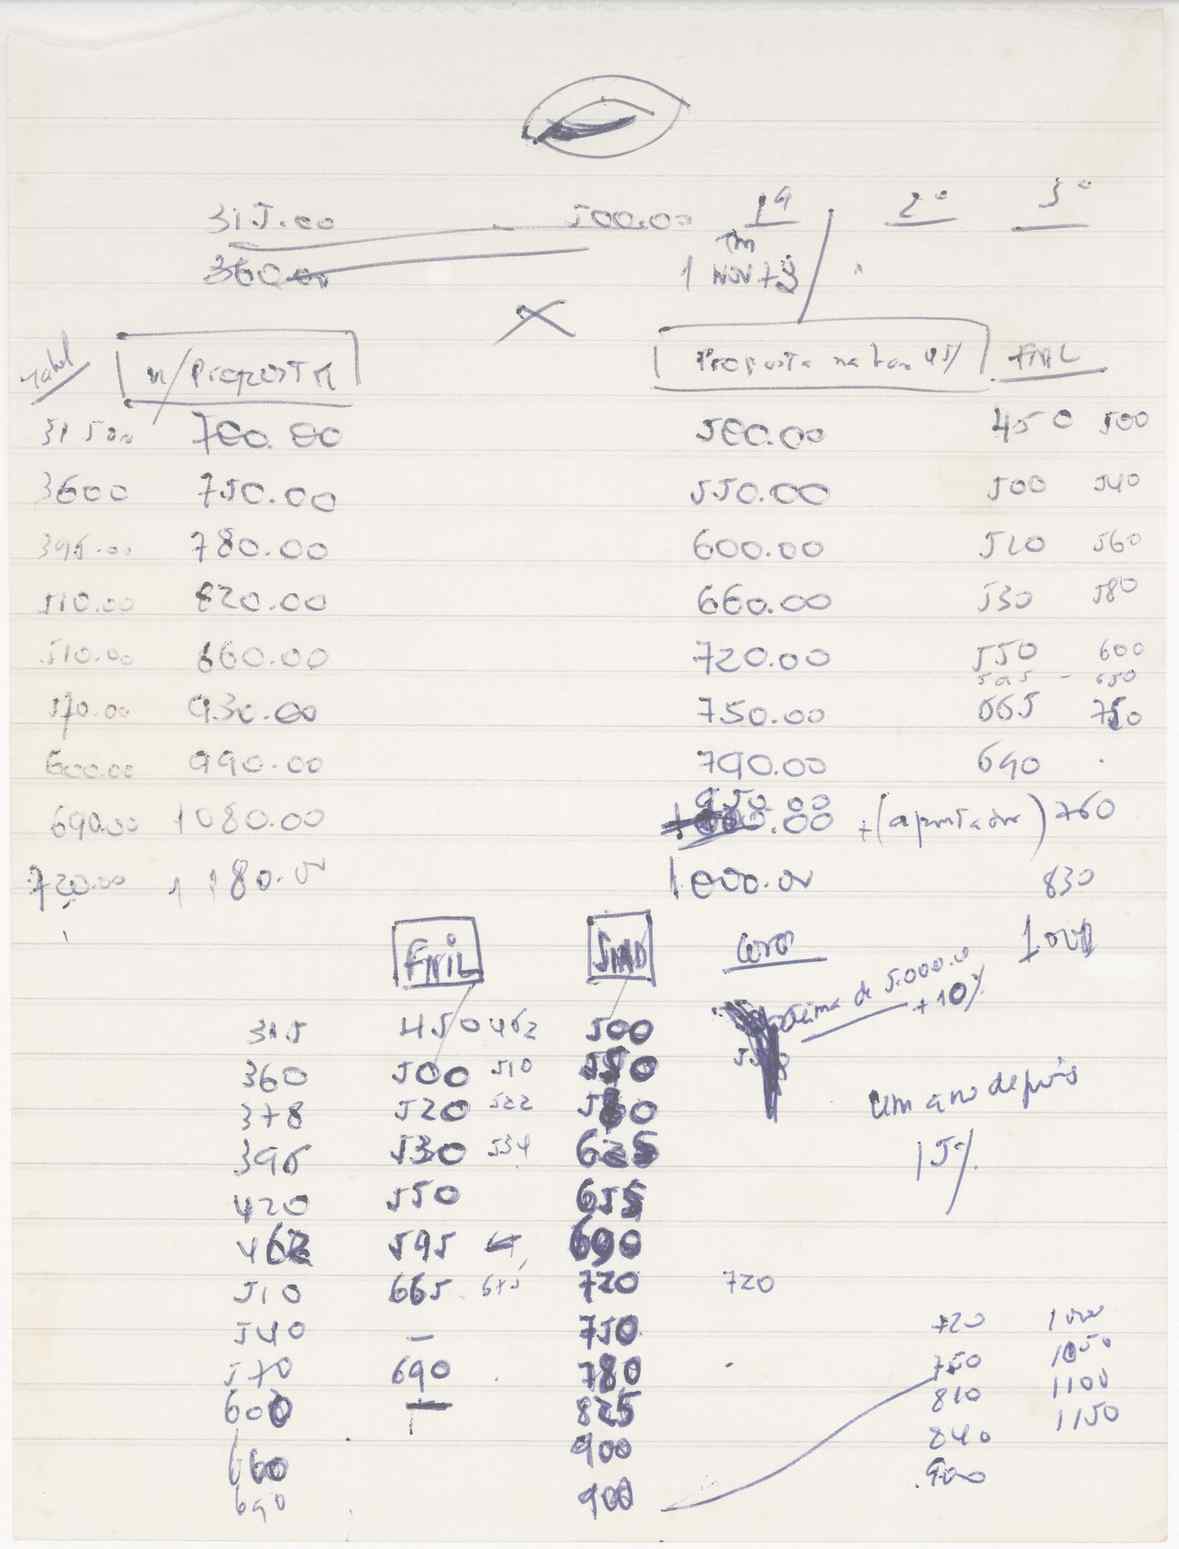 315.00 500.00 1ª 2º 3º
360.00 1 NOV 73
n/PROPOSTA Proposta na base 45% FNIL
31500 700.00 500.00 450 500
3600 750.00 550.00 500 540
395.00 780.00 600.00 520 560
510.00 820.00 660.00 530 580
510.00 860.00 720.00 550 600
595 - 650
570.00 930.00 750.00 665 750
600.00 990.00 790.00 690
950.00
690.00 1080.00 .00 + ( ) 760
720.00 1180.00 1.000.00 830
FNIL SMD
de 5.000.0
+10%
315 450 462 500
360 500 510 550
378 520 522 560
um ano depois
396 530 534 625
15%
420 550 655
462 595 690
510 665 675 720 720
540 — 750 720 1000
570 690 780 750 1050
600 — 825 810 1100
660 900 840 1150
690 900 900